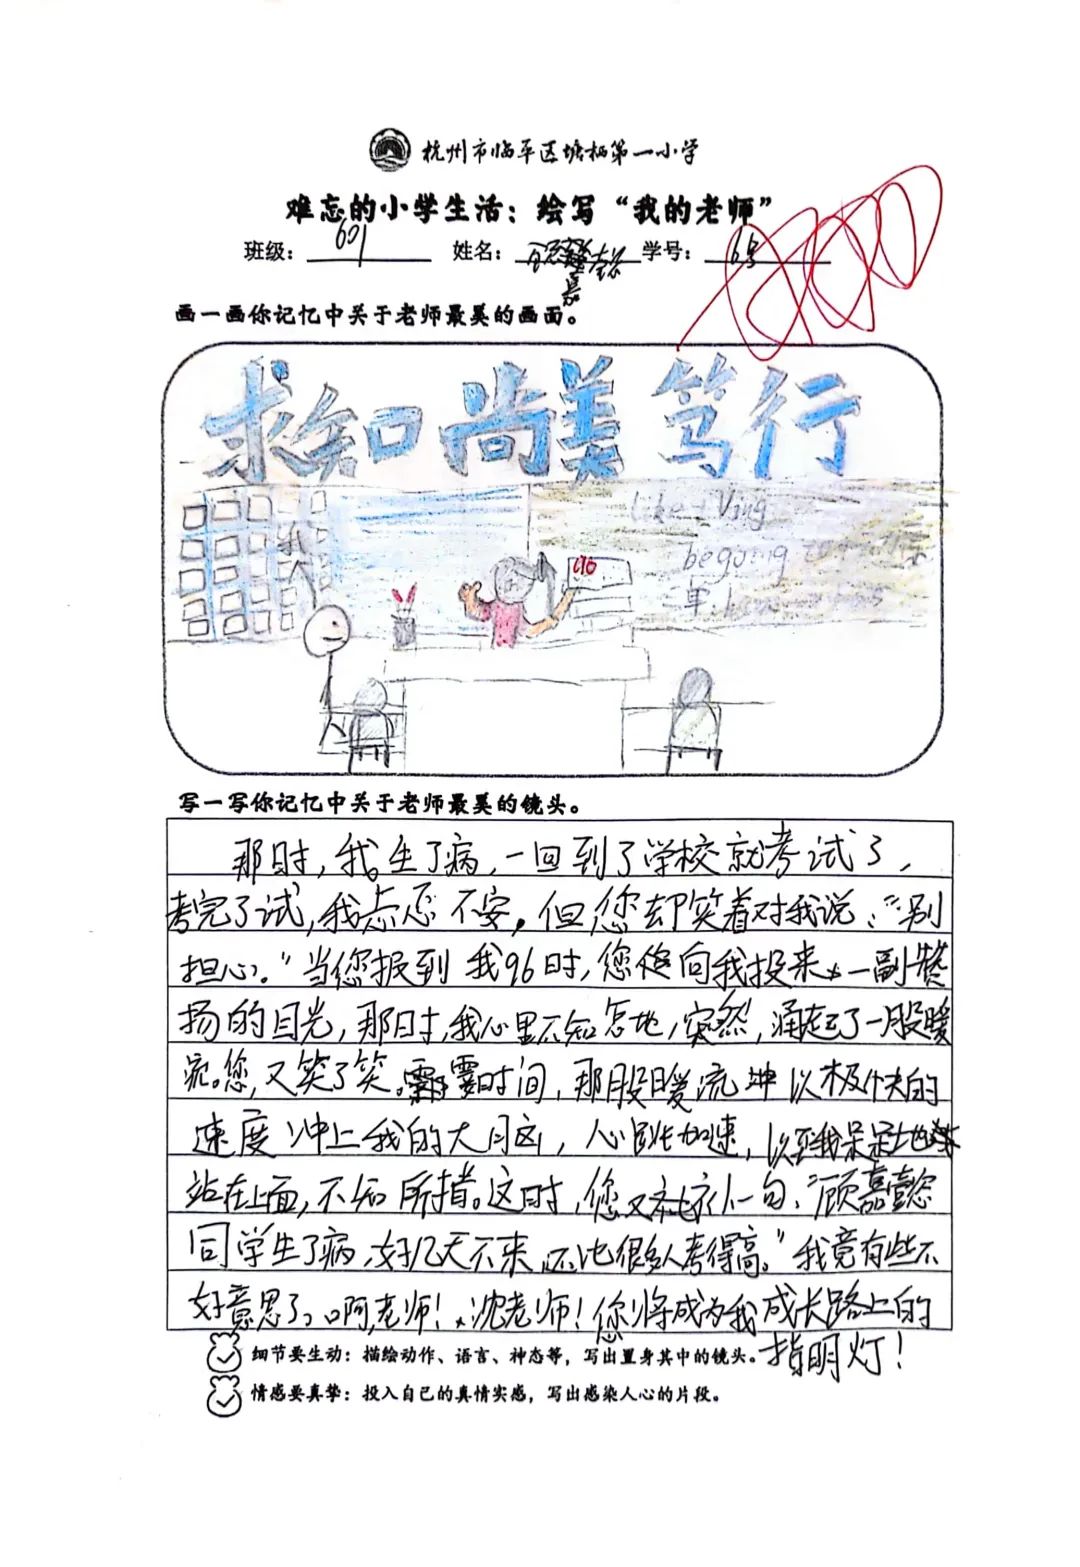 杭州市临平区塘栖第一小学
难忘的小学生活：绘写“我的老师”
班级：601 姓名： 学号：6号
画一画你记忆中关于老师最美的画面。
求知 尚美 笃行
like Ving
begoing
单
96
写一写你记忆中关于老师最美的镜头。
那时，我生了病，一回到了学校就考试了，
考完了试，我忐忑不安，但您却笑着对我说：“别
担心。”当您报到我96时，您向我投来一副赞
扬的目光，那时，我心里不知怎地，突然，涌起了一股暖
流。您，又笑了笑。霎时间，那股暖流以极快的
速度冲上我的大脑，心跳加速，以至我呆呆地
站在上面，不知所措。这时，您又补一句：“顾嘉懿
同学生了病，好几天不来，还比很多人考得高。”我竟有些不
好意思了。啊，老师！沈老师！您将成为我成长路上的
指明灯！
细节要生动：描绘动作、语言、神态等，写出置身其中的镜头。
情感要真挚：投入自己的真情实感，写出感染人心的片段。